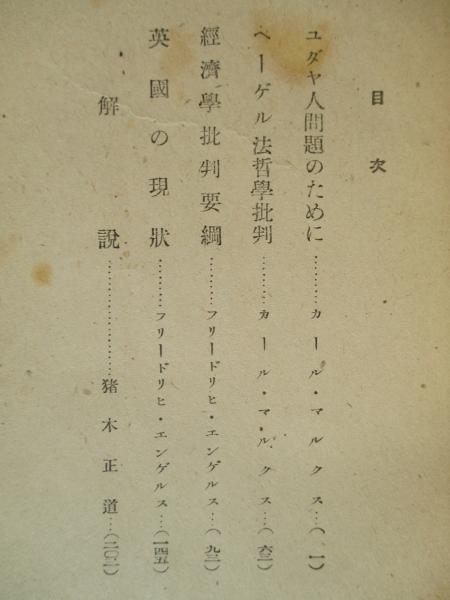 目次
ユダヤ人問題のために………カール・マルクス…(一)
ヘーゲル法哲學批判………カール・マルクス…(六一)
經濟學批判要綱………フリードリヒ・エンゲルス…(九三)
英國の現狀………フリードリヒ・エンゲルス…(一四五)
解說………………猪木正道…(二〇一)